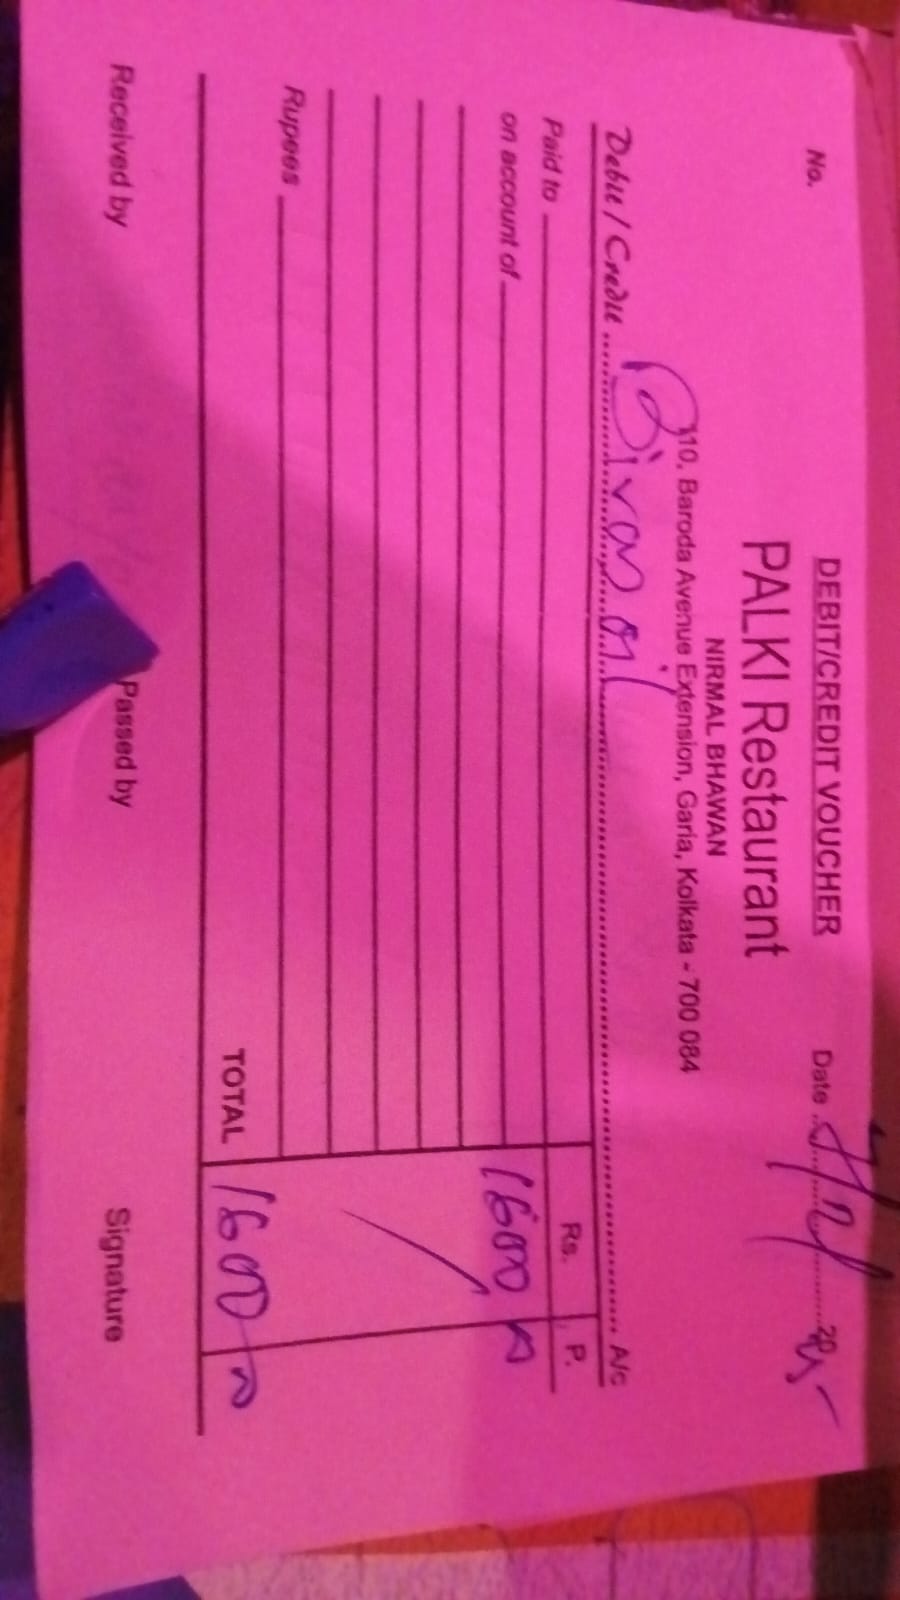 DEBIT/CREDIT VOUCHER
No. Date 20
PALKI Restaurant
NIRMAL BHAWAN
110, Baroda Avenue Extension, Garia, Kolkata - 700 084
Debit / Credit A/c
Paid to Rs. P.
on account of 1600
Rupees
TOTAL 1600
Received by Passed by Signature